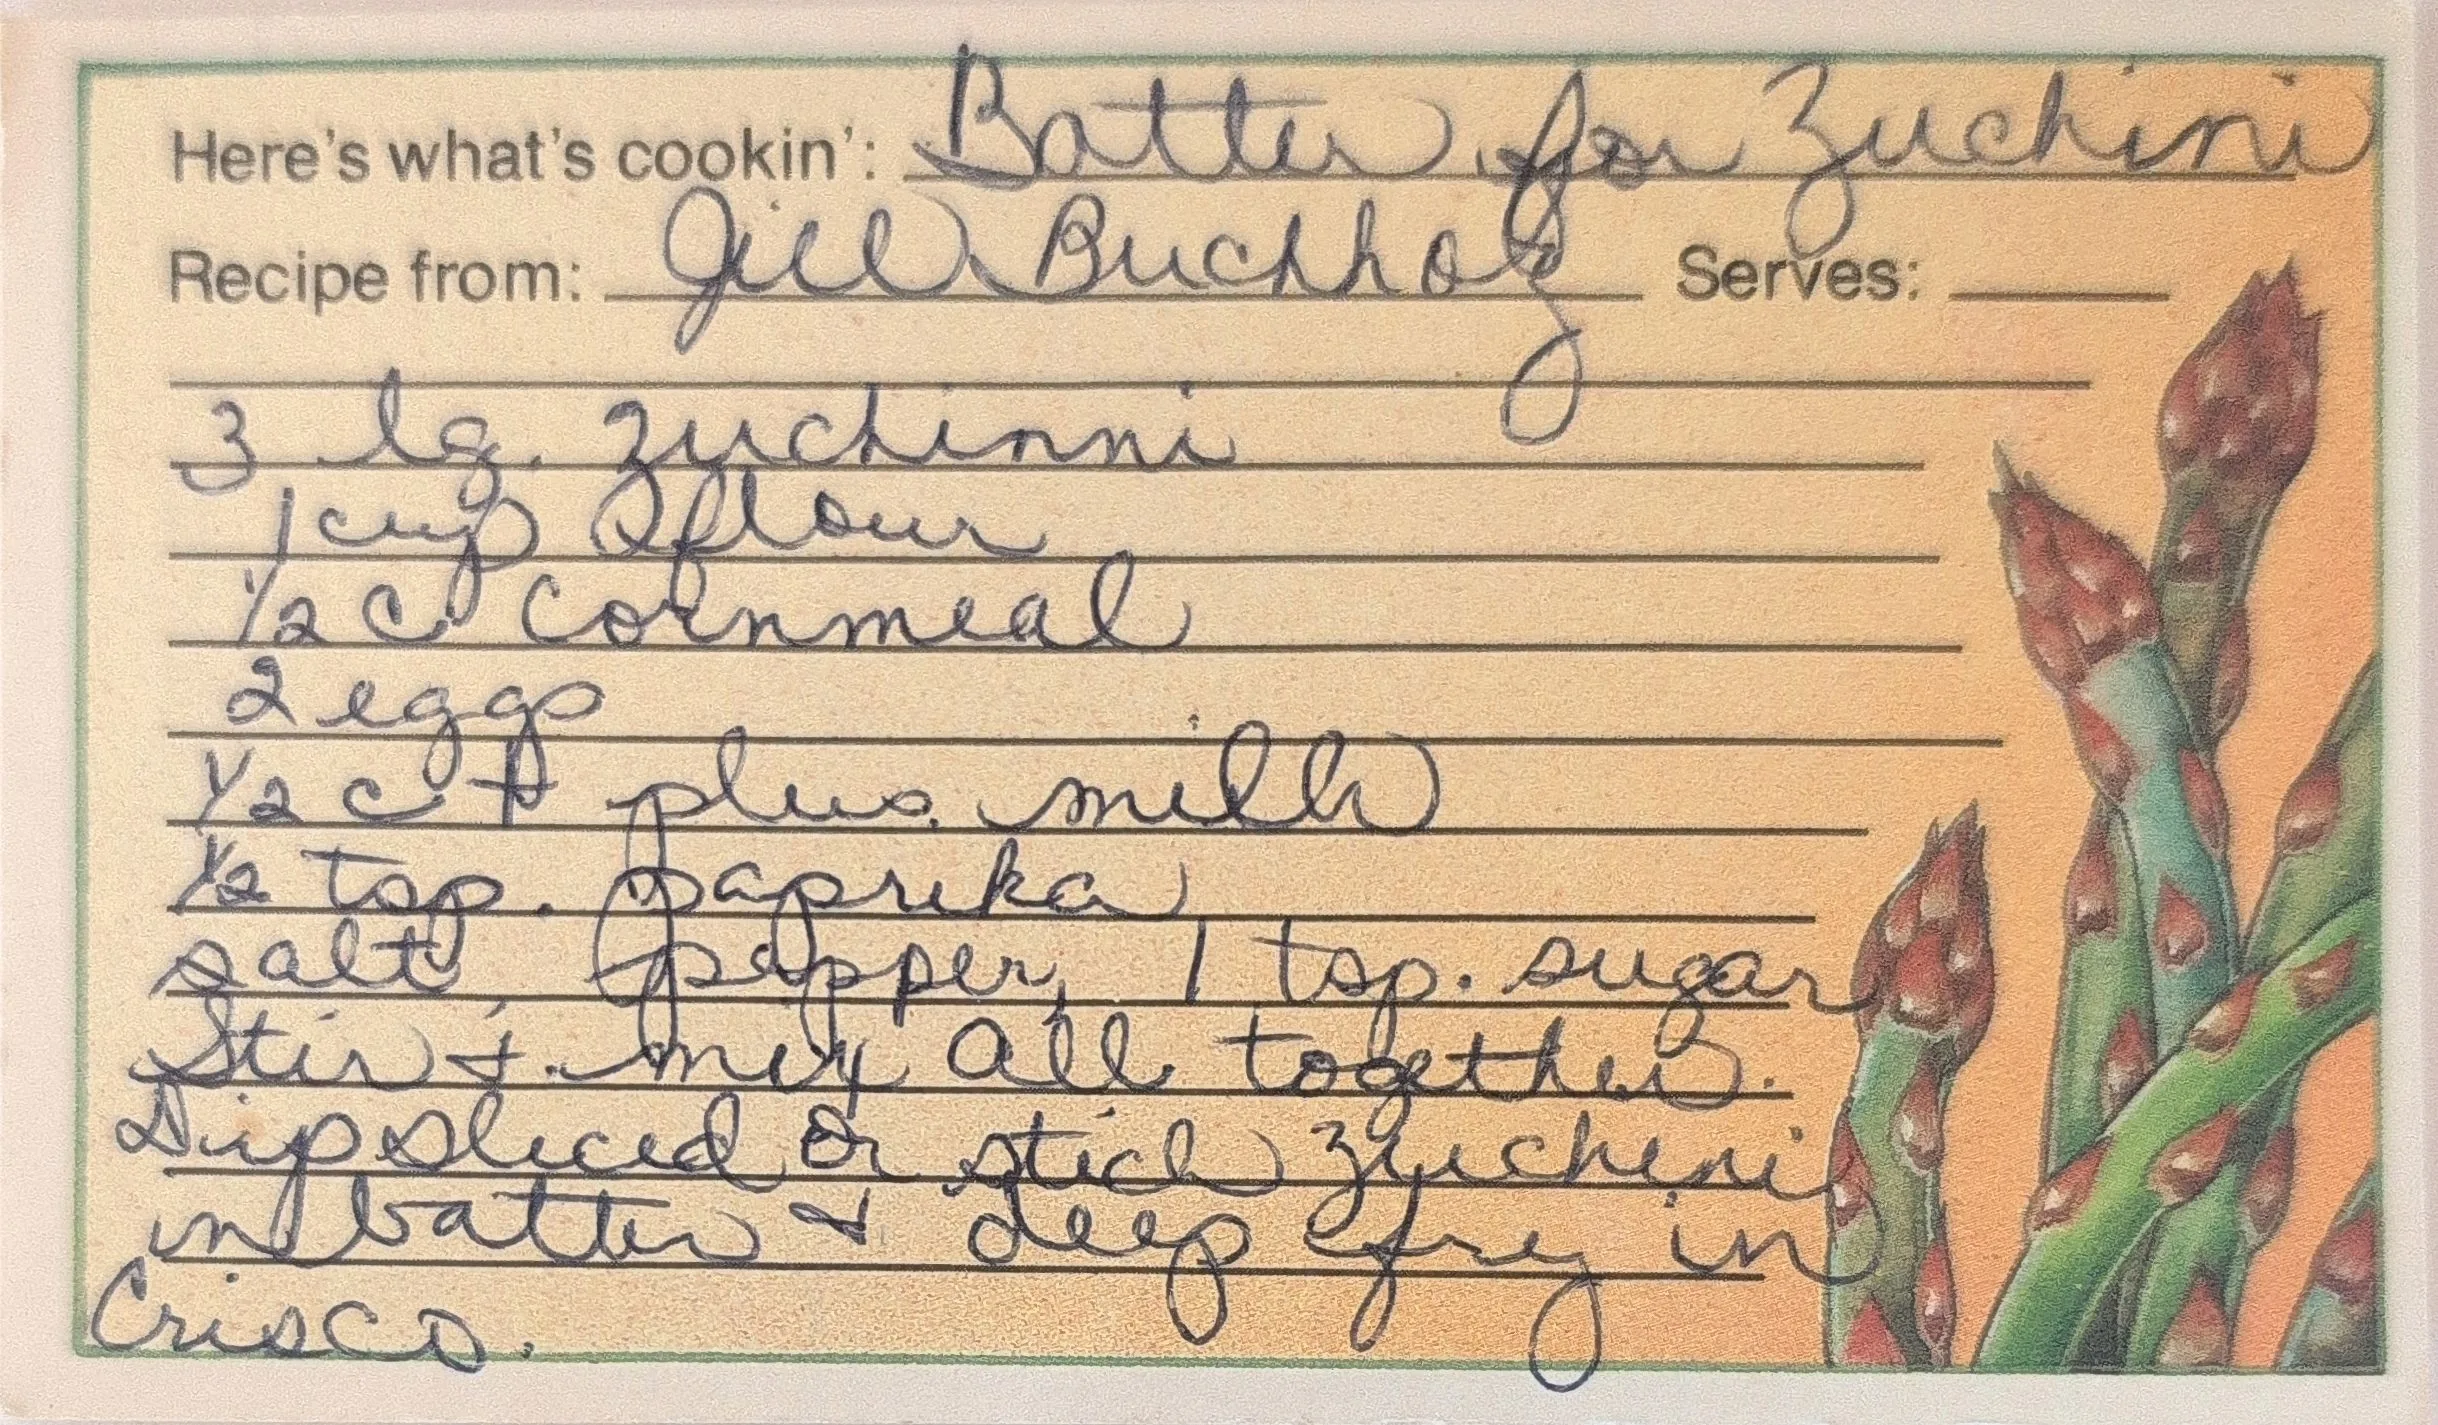 Here's what's cookin': Batter for Zuchini
Recipe from: Jill Buchholz Serves:
3 lg. zuchinni
1 cup flour
1/2 c cornmeal
2 eggs
1/2 c + plus milk
1/2 tsp. paprika
salt pepper, 1 tsp. sugar
Stir & mix all together.
Dip sliced or stick zuchini
in batter & deep fry in
Crisco.